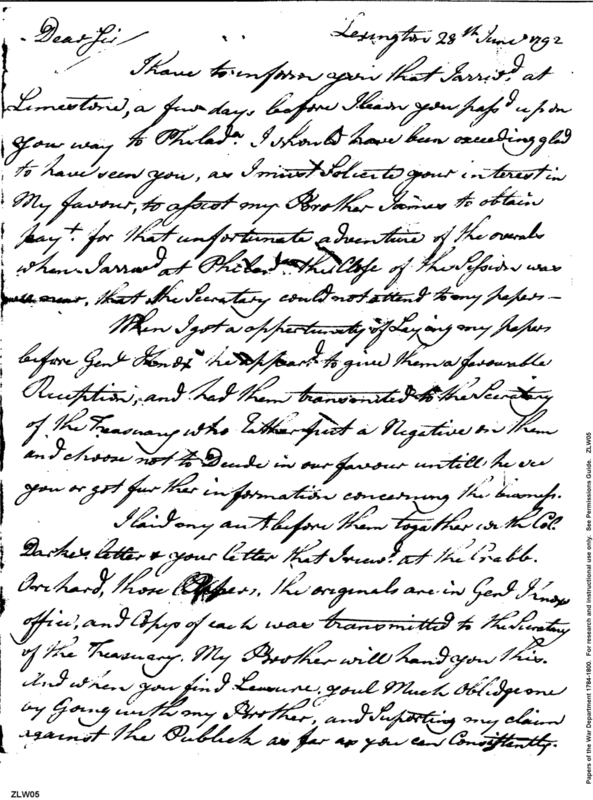 Lexington 28th June 1792
Dear Sir
I have to inform you that I arriv'd at
Limestone, a few days before I learn you pass'd up on
your way to Philada. I should have been exceeding glad
to have seen you, as I must Solicite your interest in
My favour, to assist my Brother James to obtain
payt. for that unfortunate adventure of the overals
when I arriv'd at Philad. the Close of the Session was
near, that the Secratary could not attend to my papers –
When I got a oppertunity of Laying my papers
before Genl Knox he appear'd to give them a favourable
Reception, and had them transmited to the Secretary
of the Treasury who Either put a Negative on them
and choose not to Decide in our favour untill he see
you or got further information concerning the business.
I laid my acct before them together with Col.
Darkes letter & your letter that I recvd. at the Crabb
Orchard, those Papers, the originals are in Genl Knox
office, and Copys of each was transmitted to the Secratary
of the Treasury. My Brother will hand you this.
And when you find Leasure, youl Much Oblidge me
by Going with my Brother, and Suporting my claim
against the Publick as far as you can Consistantly.
ZLW05
Papers of the War Department 1784-1800. For research and instructional use only. See Permissions Guide. ZLW05